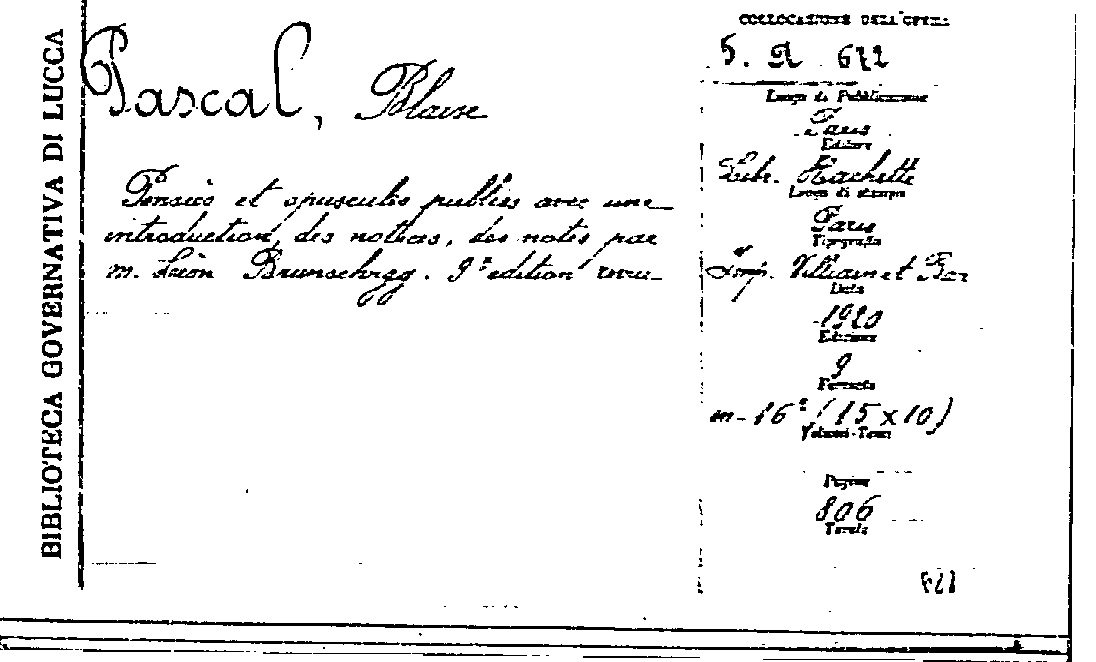 BIBLIOTECA GOVERNATIVA DI LUCCA
Pascal, Blaise
Pensées et opuscules publiés avec une
introduction, des notices, des notes par
m. Léon Brunschvgg. 9e edition revu-
COLLOCAZIONE DELL'OPERA
5. 672
Luogo di Pubblicazione
Paris
Editore
Libr. Hachette
Luogo di stampa
Paris
Tipografia
Imp. Villain et Bar
Data
1920
Edizione
9
Formato
in-16° (15x10)
Volumi-Tomi
Pagine
806
Tavole